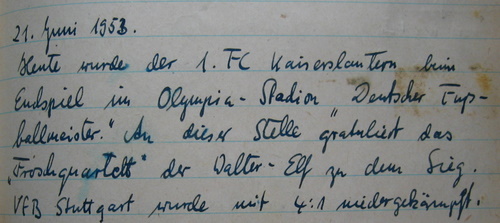 21. Juni 1953.
Heute wurde der 1. FC Kaiserslautern beim
Endspiel im Olympia-Stadion „Deutscher Fuß-
ballmeister." An dieser Stelle gratuliert das
„Fröschquartett" der Walter-Elf zu dem Sieg.
VFB Stuttgart wurde mit 4:1 niedergekämpft.